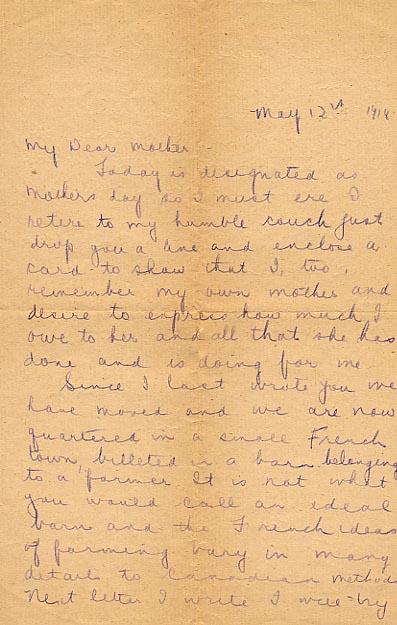 May 12st 1918
My Dear Mother -
Today is designated as
Mothers day so I must ere I
retere to my humble couch just
drop you a line and enclose a
card to show that I, too,
remember my own mother and
desire to express how much I
owe to her and all that she has
done and is doing for me
Since I last wrote you we
have moved and we are now
quartered in a small French
town, billeted in a barn belonging
to a farmer It is not what
you would call an ideal
barn and the French ideas
of farming vary in many
details to Canadian methods
Next letter I write I will try